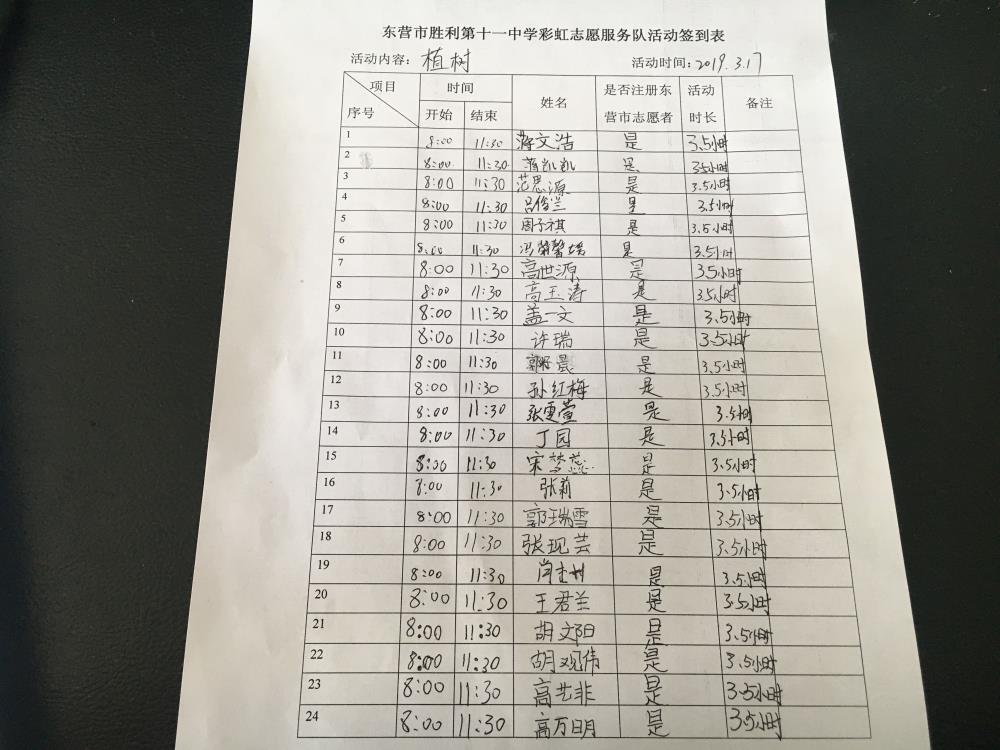 东营市胜利第十一中学彩虹志愿服务队活动签到表
活动内容：植树 活动时间：2019.3.17
项目 时间 姓名 是否注册东营市志愿者 活动时长 备注
序号 开始 结束
1 8:00 11:30 蒋文浩 是 3.5小时
2 8:00 11:30 蒋凯凯 是 3.5小时
3 8:00 11:30 范思源 是 3.5小时
4 8:00 11:30 吕俊兰 是 3.5小时
5 8:00 11:30 周子祺 是 3.5小时
6 8:00 11:30 是 3.5小时
7 8:00 11:30 高世源 是 3.5小时
8 8:00 11:30 高玉涛 是 3.5小时
9 8:00 11:30 盖一文 是 3.5小时
10 8:00 11:30 许瑞 是 3.5小时
11 8:00 11:30 是 3.5小时
12 8:00 11:30 孙红梅 是 3.5小时
13 8:00 11:30 张雯萱 是 3.5小时
14 8:00 11:30 丁园 是 3.5小时
15 8:00 11:30 宋梦蕊 是 3.5小时
16 8:00 11:30 张莉 是 3.5小时
17 8:00 11:30 郭瑞雪 是 3.5小时
18 8:00 11:30 张现芸 是 3.5小时
19 8:00 11:30 是 3.5小时
20 8:00 11:30 王君兰 是 3.5小时
21 8:00 11:30 胡文阳 是 3.5小时
22 8:00 11:30 胡观伟 是 3.5小时
23 8:00 11:30 高艺非 是 3.5小时
24 8:00 11:30 高万明 是 3.5小时